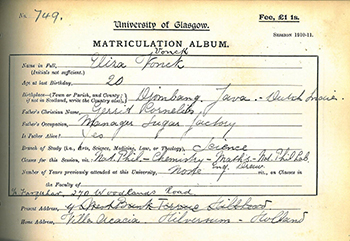 No. 749.
Fee, £1 1s.
University of Glasgow.
SESSION 1910-11.
MATRICULATION ALBUM.
Vonck
Name in Full, Eliza Vonck
(Initials not sufficient.)
Age at last Birthday, 20
Birthplace—(Town or Parish, and County; if not in Scotland, write the Country also), Djombang, Java - Dutch Indies
Father's Christian Name, Gerrit Kornelis
Father's Occupation, Manager Sugar factory
Is Father Alive? Yes
Branch of Study (i.e., Arts, Science, Medicine, Law, or Theology), Science
Classes for this Session, viz. Nat Phil - Chemistry - Maths - Nat Phil Lab.
Eng. Draw
Number of Years previously attended at this University, None, in Classes in
the Faculty of
Farquhar, 270 Woodlands Road
Present Address, Terrace Hillhead
Home Address, Villa Acacia, Hilversum - Holland